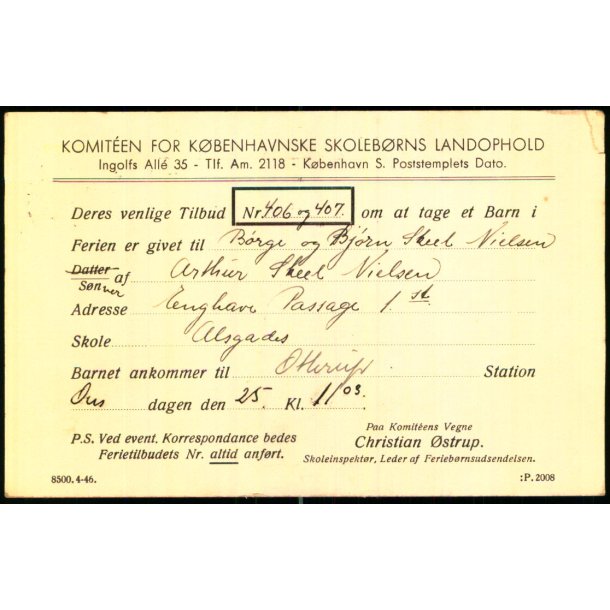 KOMITÉEN FOR KØBENHAVNSKE SKOLEBØRNS LANDOPHOLD
Ingolfs Allé 35 - Tlf. Am. 2118 - København S. Poststemplets Dato.
Deres venlige Tilbud Nr. 406 og 407. om at tage et Barn i
Ferien er givet til Børge og Bjørn Skeel Nielsen
Datter
Sønner af Arthur Skeel Nielsen
Adresse Enghave Passage 1. st
Skole Alsgades
Barnet ankommer til Otterup Station
Ons dagen den 25. Kl. 11 03.
P.S. Ved event. Korrespondance bedes
Ferietilbudets Nr. altid anført.
Paa Komitéens Vegne
Christian Østrup.
Skoleinspektør, Leder af Feriebørnsudsendelsen.
8500. 4-46.
:P. 2008